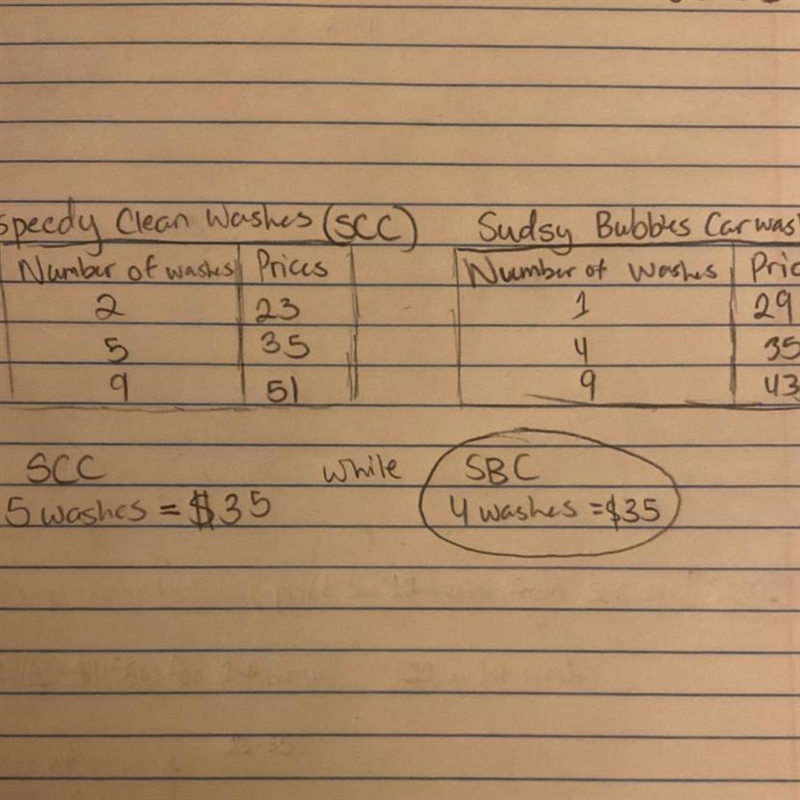 Speedy Clean Washes (SCC) Sudsy Bubbles Carwas
Number of washes Prices Number of Washes Pric
2 23 1 29
5 35 4 35
9 51 9 43
SCC while SBC
5 washes = $35 4 washes = $35